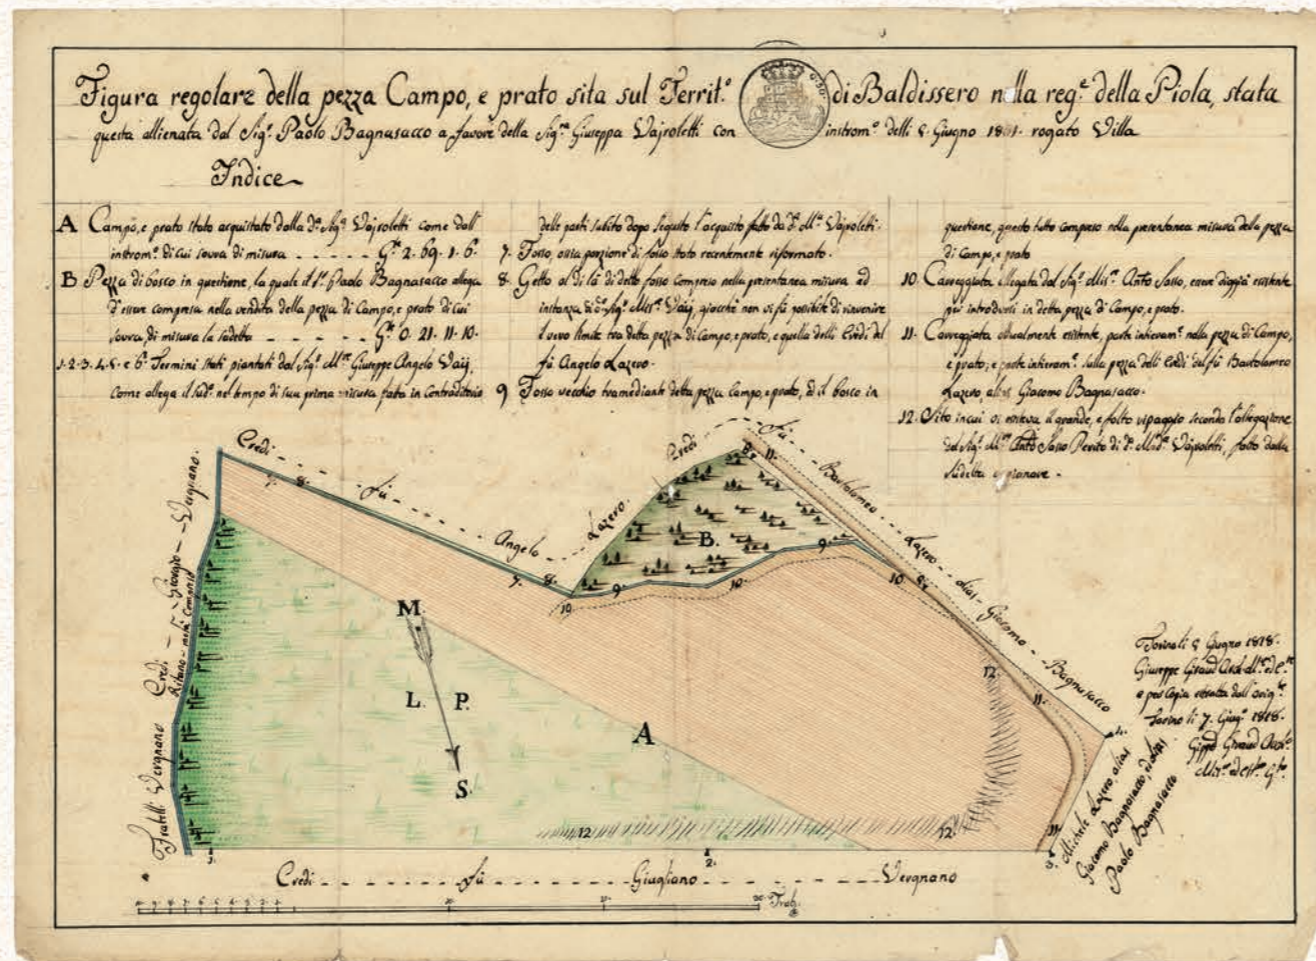 Figura regolare della pezza Campo, e prato sita sul Territ.º di Baldissero nella reg.e della Piola, stata
questa allienata dal Sig.r Paolo Bagnasacco a favore della Sig.ra Giuseppa Vajroletti con instrom.º delli 5. Giugno rogato Villa
Indice
A Campo, e prato stato acquistato dalla d.a Sig.a Vajroletti come dall'
instrom.º di cui sovra di misura - - - - - G.te 2. 69. 1. 6.
B Pezza di bosco in questione, la quale il S.r Paolo Bagnasacco allega
d'essere compresa nella vendita della pezza di Campo, e prato di cui
sovra, di misura la sudetta - - - - - G.te 0. 21. 11. 10.
1. 2. 3. 4. 5. e 6.º Termini stati piantati dal Sig.r M.re Giuseppe Angelo Vaij,
come allega il sud.º nel tempo di sua prima misura fatta in Contraditorio
delle parti subito dopo seguito l'acquisto fatto da d.a M.a Vajroletti.
7. Fosso, ossia porzione di fosso stato recentemente riformato.
8. Getto al di là di detto fosso compreso nella presentanea misura ad
instanza di d.º Sig.r Mis.re Vaij, giacchè non vi fù possibile di rinvenire
il vero limite tra detta pezza di Campo, e prato, e quella delli Eredi del
fù Angelo Lazero.
9 Fosso vecchio tramediante detta pezza Campo, e prato, ed il bosco in
questione, questo tutto compreso nella presentanea misura della pezza
di Campo, e prato
10. Carreggiata allegata dal Sig.r Mis.re Anto Sasso, essere diggià esistente
per introdursi in detta pezza di Campo, e prato.
11. Carreggiata attualmente esistente, parte intieram.e nella pezza di Campo,
e prato; e parte intieram.e sulla pezza delli Eredi del fù Bartolomeo
Lazero alias Giacomo Bagnasacco.
12. Sito in cui si esisteva il grande, e folto ripaggio secondo l'allegazione
del Sig.r M.re Anto Sasso Perito di d.a Mad.a Vajroletti, fatto dalla
sudetta spianare.
Eredi - - - fù - - - Angelo - - - Lazero
Eredi - - - fù - - - Bartolomeo - - Lazero - - alias - Giacomo - Bagnasacco
7. 8.
7. 8.
8. 11.
B.
9
9
10.
10
10
M
L P.
S.
A
12.
11.
12
12.
11
2.
Fratelli Vergnano
Eredi - fù - Giorgio - Vergnano
Eredi - - - - fù - - - - Giugliano - - - - Vergnano
Michele Lazero, alias
Giacomo Bagnasacco,
Paolo Bagnasacco
Torino li 5 Giugno 1818.
Giuseppe Giraud
e per Copia estratta dall'orig.le
Torino li 7. Giug.º 1818.
Trab.